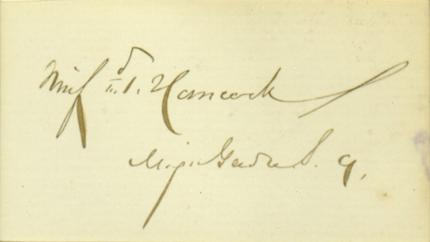 Winfd S. Hancock
Maj. Genl U. S. A.